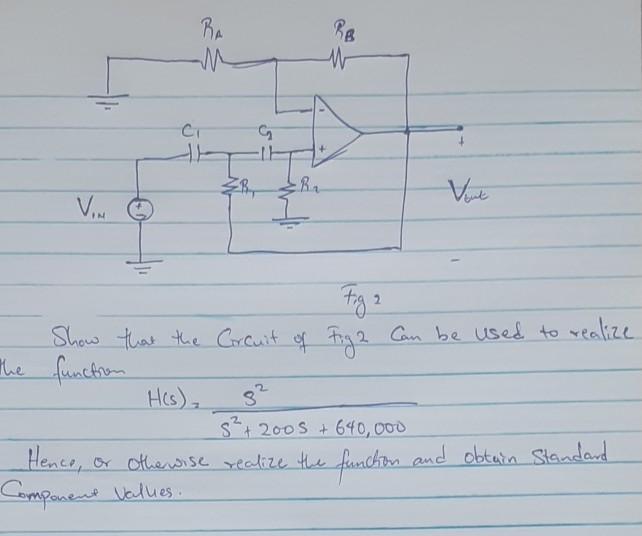 RA
RB
-
C1
C2
+
R1
R2
VIN
+
-
+
Vout
-
Fig 2
Show that the Circuit of Fig 2 Can be used to realize
the function
H(s) = S²
S² + 200S + 640,000
Hence, or otherwise realize the function and obtain Standard
Component Values.